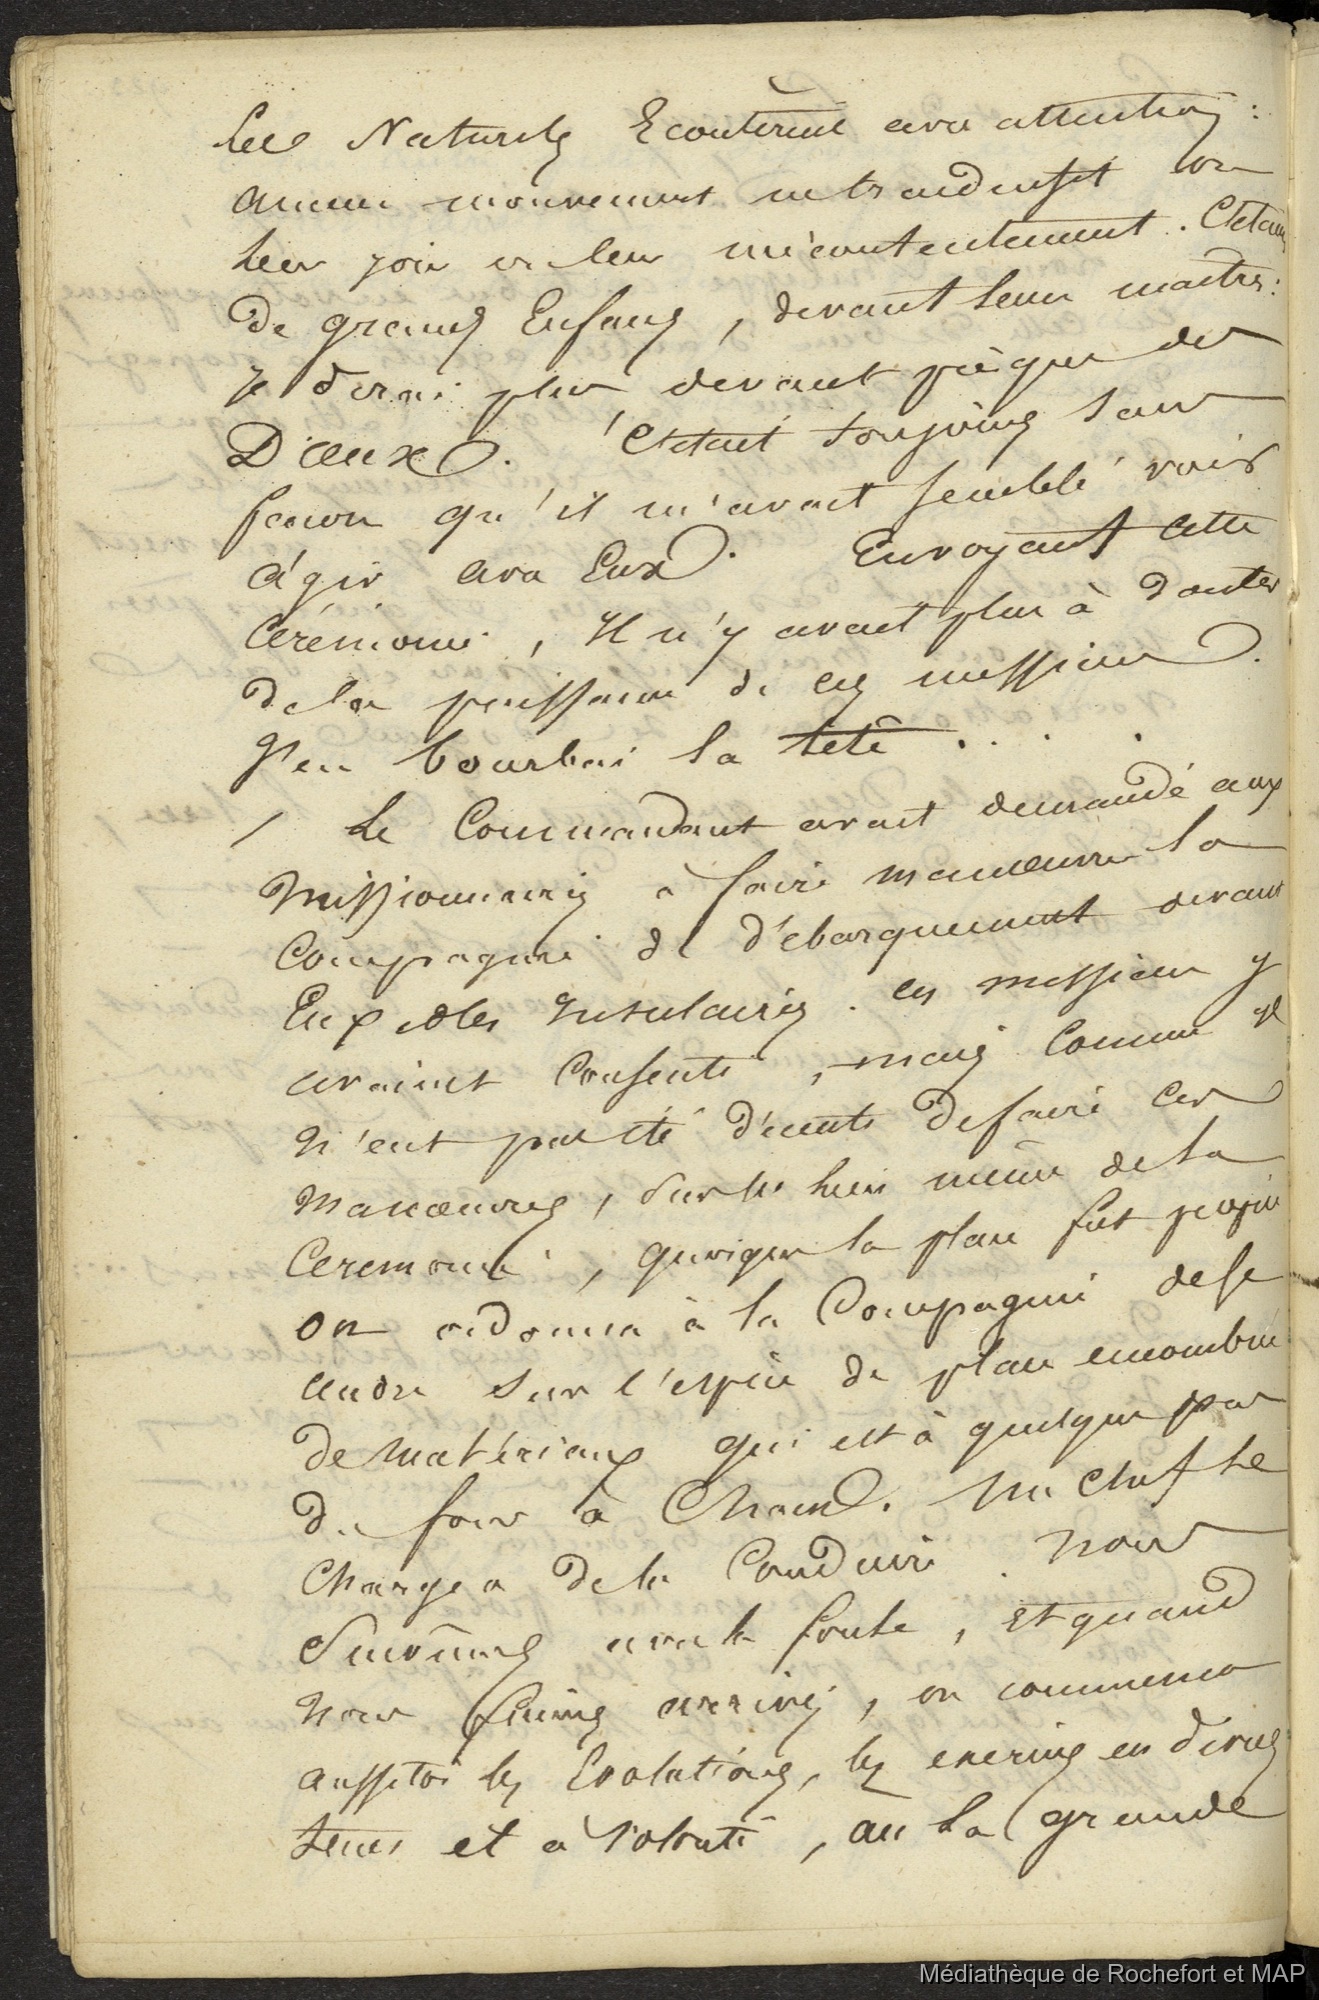 Les Naturels Ecoutèrent avec attention :
aucun mouvement ne traduisit ou
leur joie ou leur mécontentement. C'était
de grands Enfans, devant leurs maitres :
je dirai plus devant presque des
Dieux. C'etait toujours sans
façon qu'il m'avait semblé voir
agir avec Eux. En voyant cette
Cérémonie, Il n'y avait plus à douter
de la puissance de ces messieurs.
J'en courbai la tête . . . .
/ Le Commandant avait demandé aux
Missionnaires à faire manoeuvrer la
Compagnie de débarquement devant
Eux et les Insulaires. ces messieurs y
avaient Consenti, mais Comme il
n'eut pas été décent de faire ces
manoeuvres, sur le lieu même de la
Ceremonie, quoique la place fut propice
on ordonna à la Compagnie de se
rendre sur l'espèce de place encombrée
de matériaux qui est à quelques pas
du four à Chaux. Un chef se
Chargea de la Conduire. Nous
Suivimes avec la foule, et quand
nous fumes arrivés, on commença
aussitot les Evolutions, les exercices en divers
tems et à volonté, au la grande